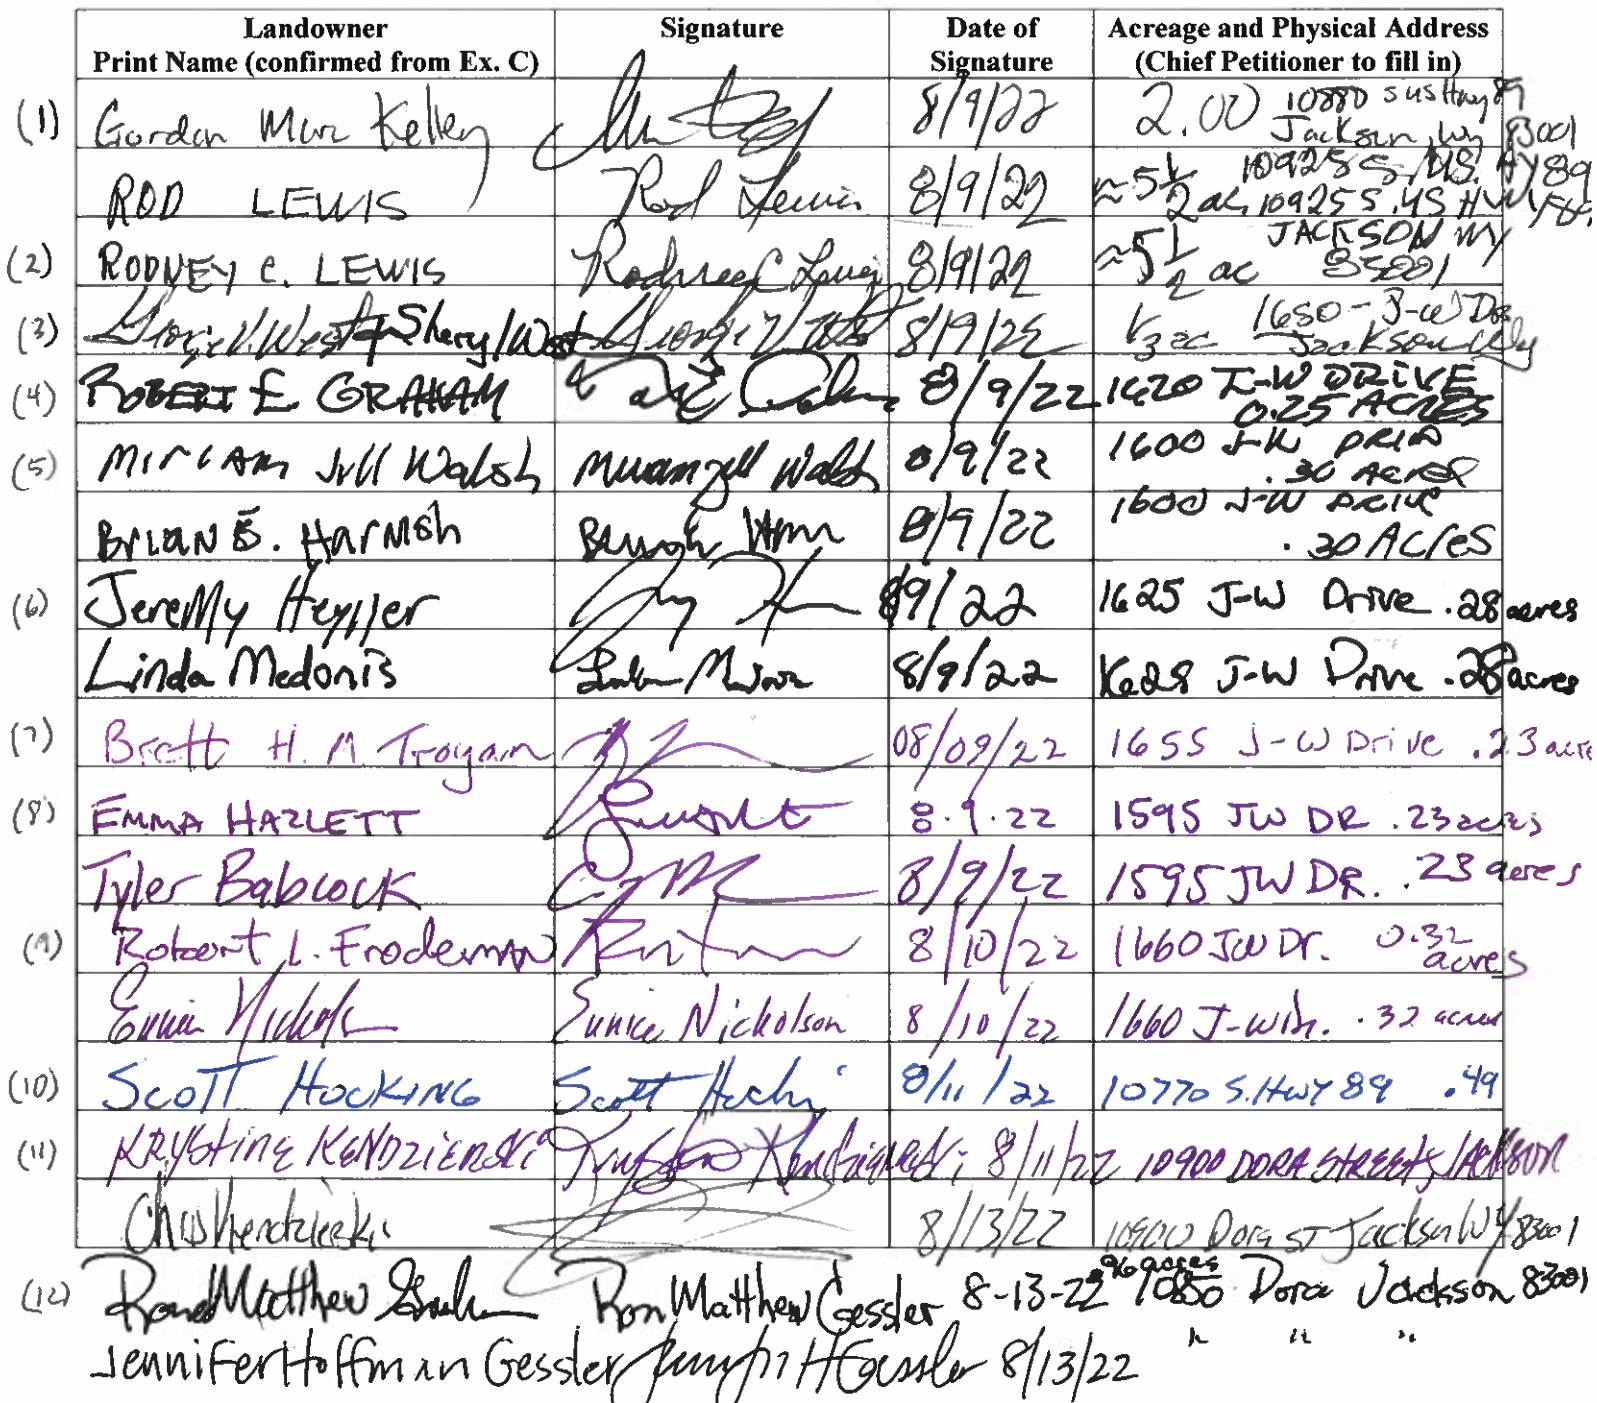 Landowner Signature Date of Acreage and Physical Address
Print Name (confirmed from Ex. C) Signature (Chief Petitioner to fill in)
(1) Gordon Marc Kelley 8/9/22 2.00 10880 S US Hwy 89
Jackson, Wy 83001
ROD LEWIS Rod Lewis 8/9/22 ~5 1/2 ac, 10925 S. US HWY 89
10925 S. US HWY 89
(2) RODNEY C. LEWIS Rodney C Lewis 8/9/22 ~5 1/2 ac JACKSON WY
83001
(3) George V. West & Sheryl West George V West 8/9/22 1/3 ac 1650 - J-W Dr
Jackson Wy
(4) ROBERT E GRAHAM 8/9/22 1620 J-W DRIVE
0.25 ACRES
(5) Miriam Jill Walsh Miriam Jill Walsh 8/9/22 1600 J-W DRIVE
.30 ACRES
BRIAN E. HARMSh 8/9/22 1600 J-W DRIVE
.30 ACRES
(6) Jeremy 8/9/22 1625 J-W Drive .28 acres
Linda Medonis 8/9/22 1625 J-W Drive .28 acres
(7) Brett H. M Troyan 08/09/22 1655 J-W Drive .23 acre
(8) EMMA HAZLETT 8.9.22 1595 JW DR .23 acres
Tyler Babcock 8/9/22 1595 JW DR. .23 acres
(9) Robert L. Froderman 8/10/22 1660 JW Dr. 0.32
acres
Eunice Nichols Eunice Nicholson 8/10/22 1660 J-W Dr. .32 acres
(10) SCOTT HOCKING Scott 8/11/22 10770 S. HWY 89 .49
(11) KRYSTINE KENDZIERSKI Krystine Kendzierski 8/11/22 10900 DORA STREET, JACKSON
Chris Kendzierski 8/13/22 10900 Dora ST Jackson WY 83001
.96 acres
(12) Matthew Ron Matthew Gessler 8-13-22 1085 Dora Jackson 83001
Jennifer Hoffman Gessler Jennifer H Gessler 8/13/22 " " "